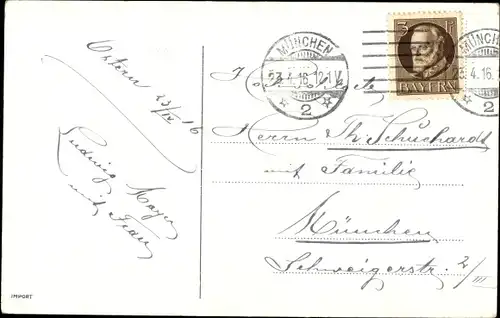 Ostern 23/IV 16
Ludwig Mayer
mit Frau
IMPORT
MÜNCHEN
23.4.16.12-1V.
2
3
BAYERN
MÜNCHEN
23.4.16.
2
Herrn Th. Schuchardt
mit Familie
München
Schweigerstr. 2/III